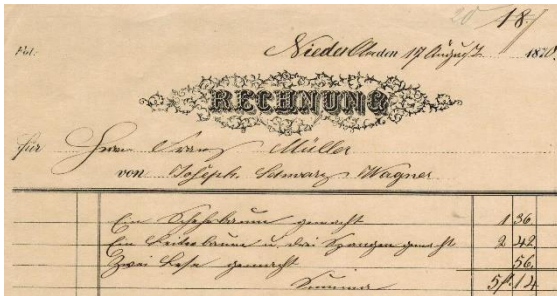 20 18
Fol.
Nieder 17 August 1870
RECHNUNG
für Herrn Franz Müller
von Joseph Schwarz Wagner
Ein gemacht 1 36
Ein Leiterbaum u. drei Spangen gemacht 2 42
Zwei gemacht 56
Summa 5 f. 14